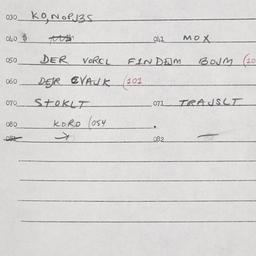 030 KO,NOPJ35
040 $ 041 MOX
050 DER VORCL FINDEM BOJM (10
060 DER EVAJK (101
070 STOKLT 071 TRAJSLT
080 KORO (054
081 → 082 —